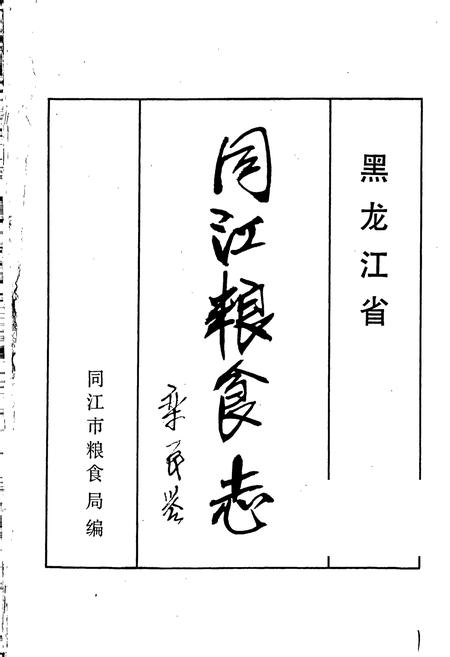 黑龙江省
同江粮食志
同江市粮食局编